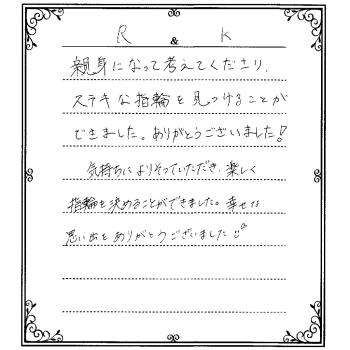 R & K
親身になって考えてくださり、
ステキな指輪を見つけることが
できました。ありがとうございました!
気持ちによりそっていただき、楽しく
指輪を決めることができました。幸せな
思い出をありがとうございました